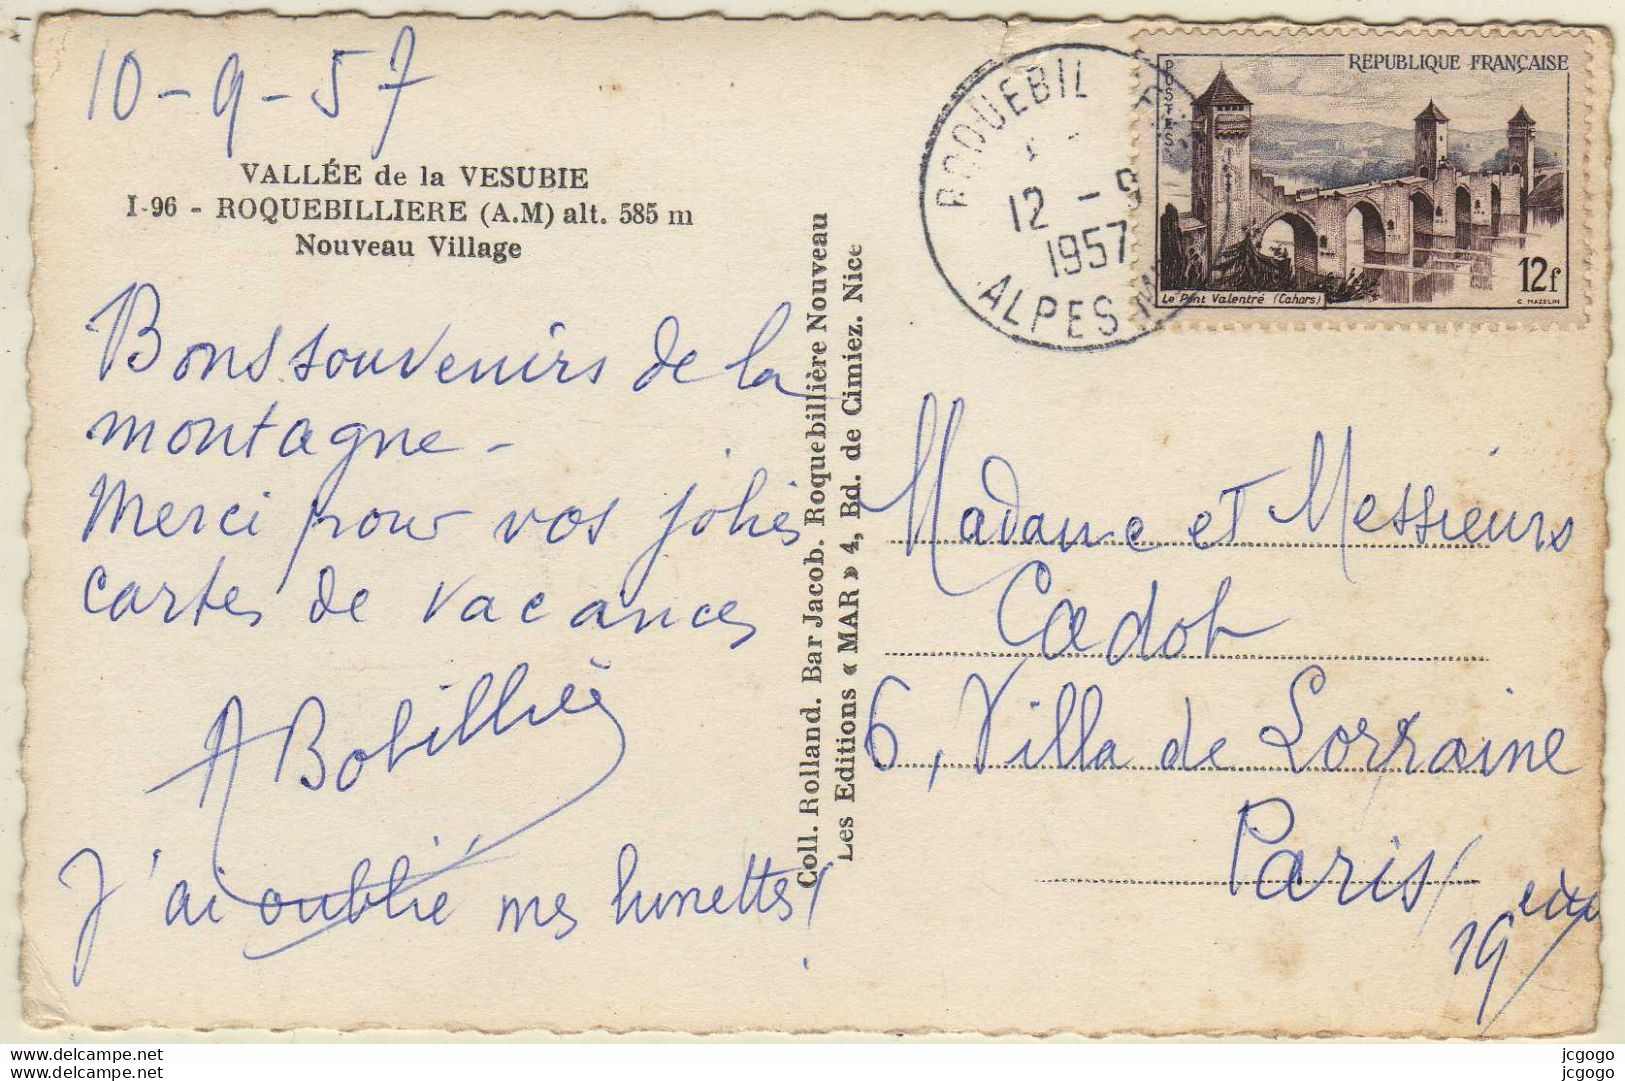 10-9-57
VALLÉE de la VESUBIE
I-96 - ROQUEBILLIERE (A.M) alt. 585 m
Nouveau Village
Bons souvenirs de la
montagne -
Merci pour vos jolies
cartes de vacances
A Bobillier
J'ai oublié mes lunettes!
Coll. Rolland. Bar Jacob. Roquebillière Nouveau
Les Editions « MAR » 4, Bd. de Cimiez. Nice
ROQUEBIL
12 - 9
1957
ALPES M
REPUBLIQUE FRANÇAISE
POSTES
12f
Le Pont Valentré (Cahors)
C. MAZELIN
Madame et Messieurs
Cadot
6, Villa de Lorraine
Paris
19
www.delcampe.net
www.delcampe.net
jcgogo
jcgogo